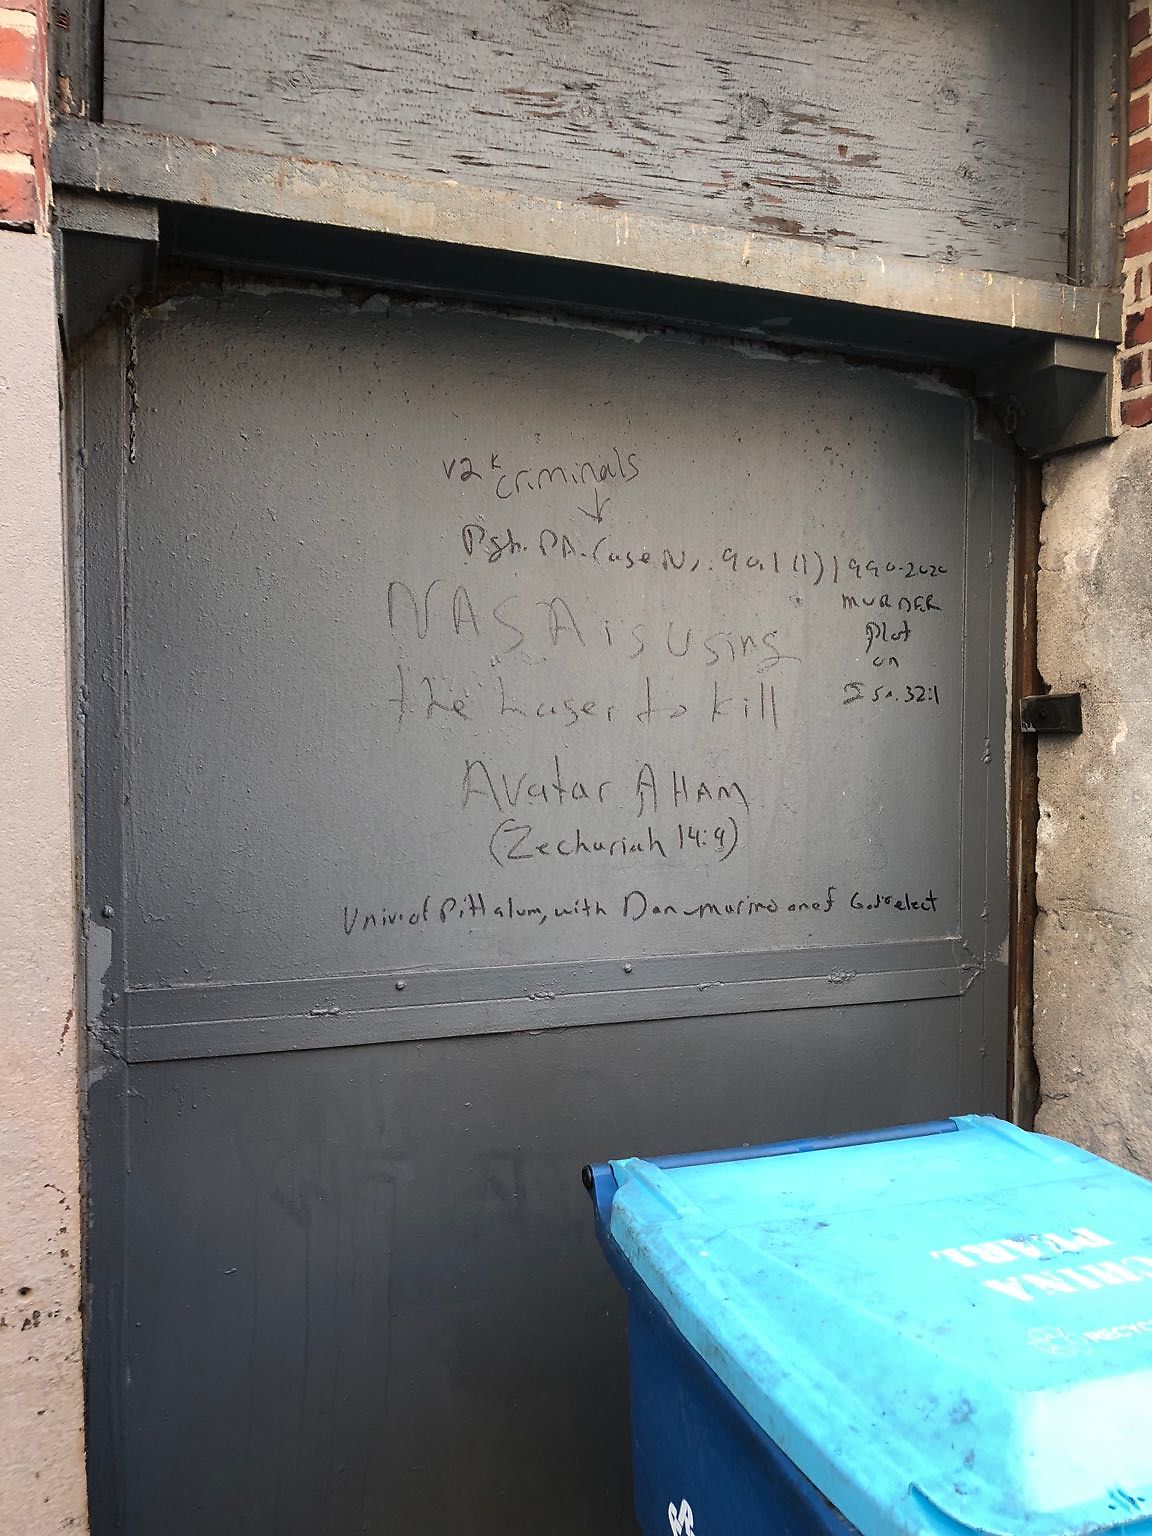 v2k criminals
Pgh. PA. Case No. 90.1 (1) 1990-2020
MURDER
Plot
on
Isa. 32:1
NASA is using
the Laser to kill
Avatar AHAM
(Zechariah 14:9)
Univ. of Pitt alum, with Dan marino one of God's elect
CHINA
PEARL
RECYC